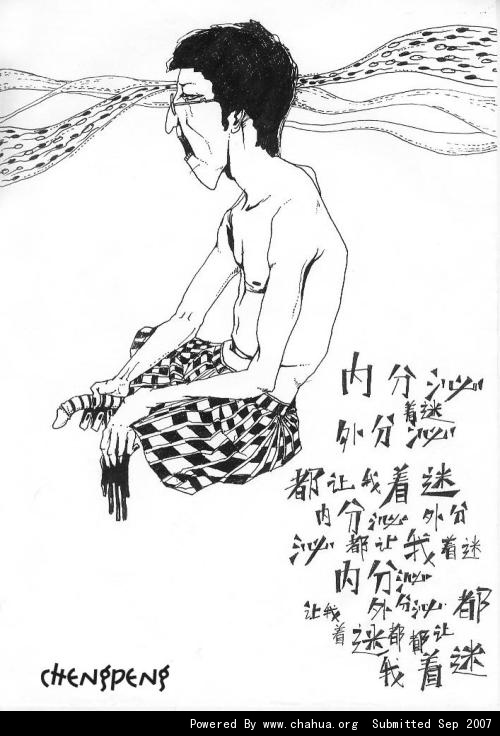 内分泌
着迷
外分泌
都让我着迷
内分泌外分
泌都让我着迷
内分泌
让我外分泌都
着迷都都让
我着迷
CHENGPENG
Powered By www.chahua.org Submitted Sep 2007